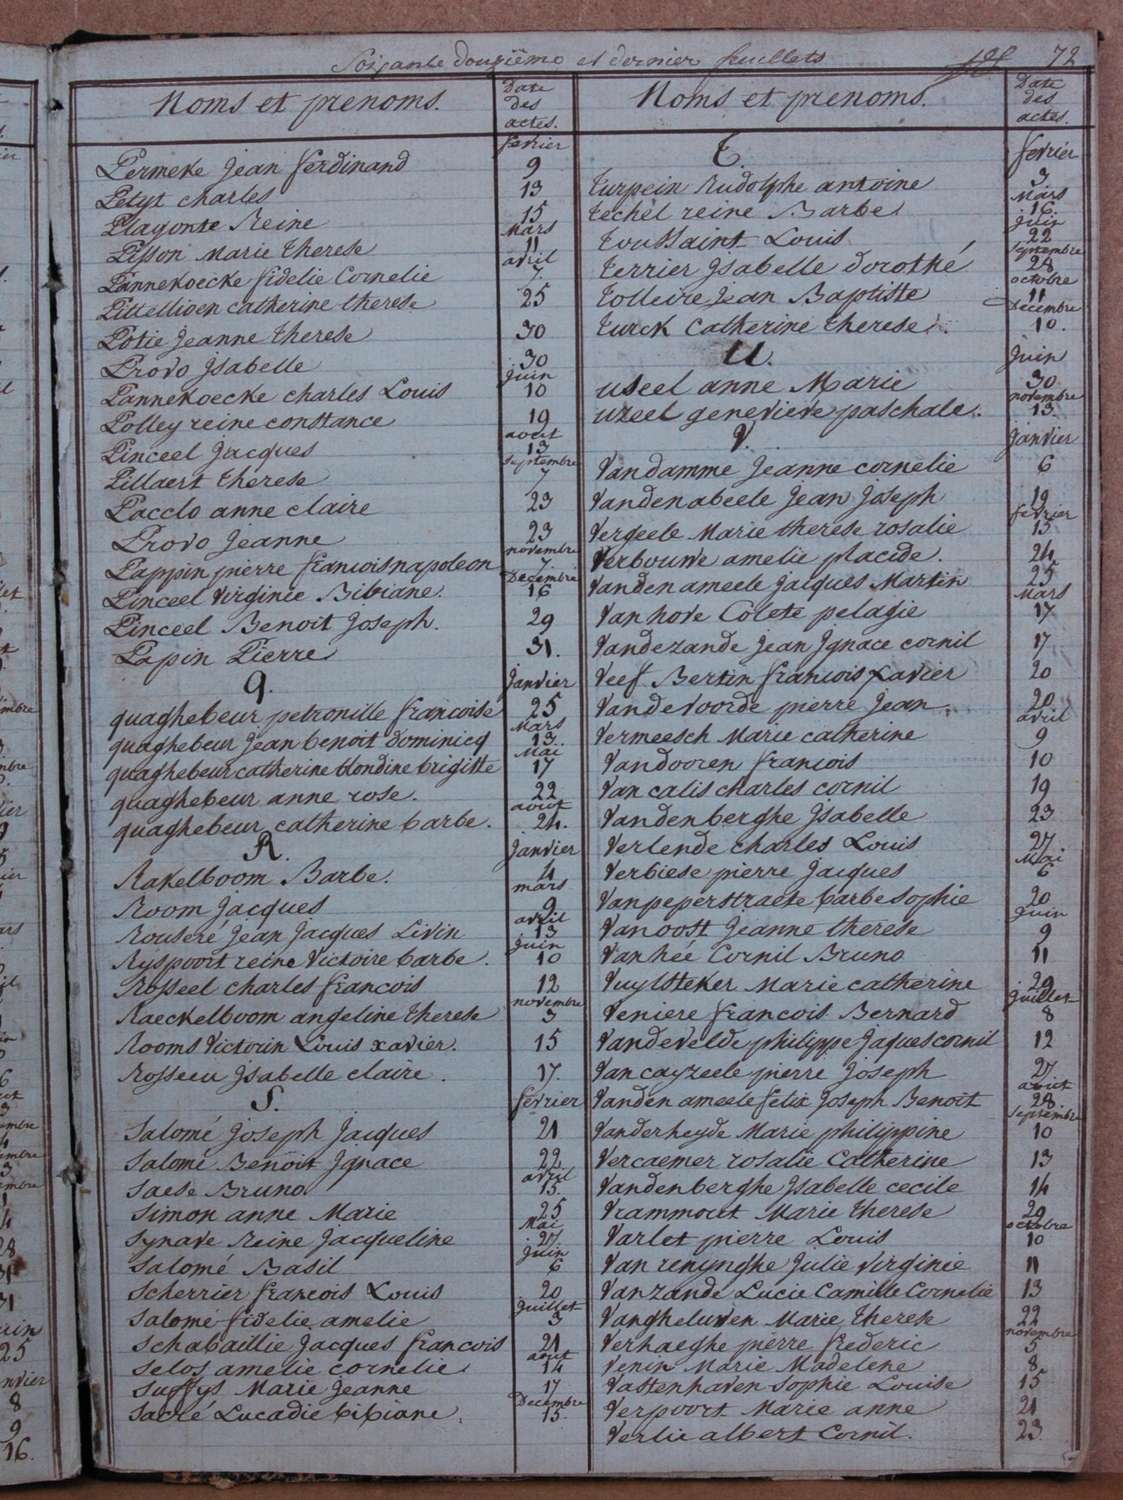 Soixante douzième et dernier feuillets 72
Noms et prenoms. Date des actes.
fevrier
Permeke Jean ferdinand 9
Petyt charles 13
Plagonte Reine 15
Mars
Pisson Marie therese 11
avril
Pannekoecke fidelie Cornelie 7.
Pittellioen catherine therese 25
Potie Jeanne therese 30
Provo Isabelle 30
Juin
Pannekoecke charles Louis 10
Polley reine constance 19
aout
Pinceel Jacques 13
septembre
Pillaert therese 7
Pacclo anne claire 23
Provo Jeanne 23
novembre
Pappin pierre francois napoleon 7.
Decembre
Pinceel Virginie Bibiane. 16
Pinceel Benoit Joseph. 29
Papin Pierre 31.
Q. Janvier
quaghebeur petronille francoise 25
Mars
quaghebeur Jean benoit dominicq 13.
Mai
quaghebeur catherine blondine brigitte 17
quaghebeur anne rose. 22
aout
quaghebeur catherine barbe. 24.
R. Janvier
Rakelboom Barbe. 4
mars
Room Jacques 9
avril
Rouseré Jean Jacques Livin 13
Juin
Ryspoort reine Victoire barbe. 10
Rosseel charles francois 12
novembre
Raeckelboom angeline therese 3
Rooms Victorin Louis xavier. 15
Rosseeu Isabelle claire. 17.
S. fevrier
Salomé Joseph Jacques 21
Salomé Benoit Ignace 22
avril
Saese Bruno 15.
Simon anne Marie 25
Mai
Synave Reine Jacqueline 27.
Juin
Salomé Basil 6
Scherrier francois Louis 20
Juillet
Salomé fidelie amelie 3
Schabaillie Jacques francois 21
aout
Selos amelie cornelie 14
Suffys Marie Jeanne 17
Decembre
Sacré Lucadie bibiane. 15.
Noms et prenoms. Date des actes.
T. fevrier
Turpein Rudolphe antoine 3
Mars
Techel reine Barbe 16.
Juin
Toussaint Louis 22
septembre
Terrier Isabelle dorothé 28
octobre
Tolleire Jean Baptiste 11
Decembre
Turck Catherine therese. 10.
U. Juin
useel anne Marie 30
novembre
uzeel genevieve paschale. 13.
V. Janvier
Vandamme Jeanne cornelie 6
Vandenabeele Jean Joseph 19
fevrier
Vergeele Marie therese rosalie 15
Verbouwe amelie placide. 24
Vanden ameele Jacques Martin 25
Mars
Van hove Colete pelagie 17
Vandezande Jean Ignace cornil 17
Veef Bertin francois xavier 20
Vandevoorde pierre Jean. 20
avril
Vermeesch Marie catherine 9
Vandooren francois 10
Van calis charles cornil 19
Vandenberghe Isabelle 23
Verlende charles Louis 27.
Mai
Verbiese pierre Jacques 6
Vanpeperstraete barbe sophie 20
Juin
Vanoost Jeanne therese 9
Vanhée Cornil Bruno 11
Vuylsteker Marie catherine 29
Juillet
Veniere francois Bernard 8
Vandevelde philippe Jaques cornil 12
Van cayzeele pierre Joseph 27.
aout
Vanden ameele felix Joseph Benoit 28
septembre
Vanderheyde Marie philippine 10
Vercaemer rosalie Catherine 13
Vandenberghe Isabelle cecile 14
Vrammout Marie therese 20
octobre
Varlet pierre Louis 10
Van renynghe Julie Virginie 11
Vanzande Lucie Camille Cornelie 13
Vangheluwen Marie therese 22
novembre
Verhaeghe pierre frederic 5
Venin Marie Madelene 8
Vattenhaven sophie Louise 15
Verpoort Marie anne 21
Verlie albert Cornil. 23